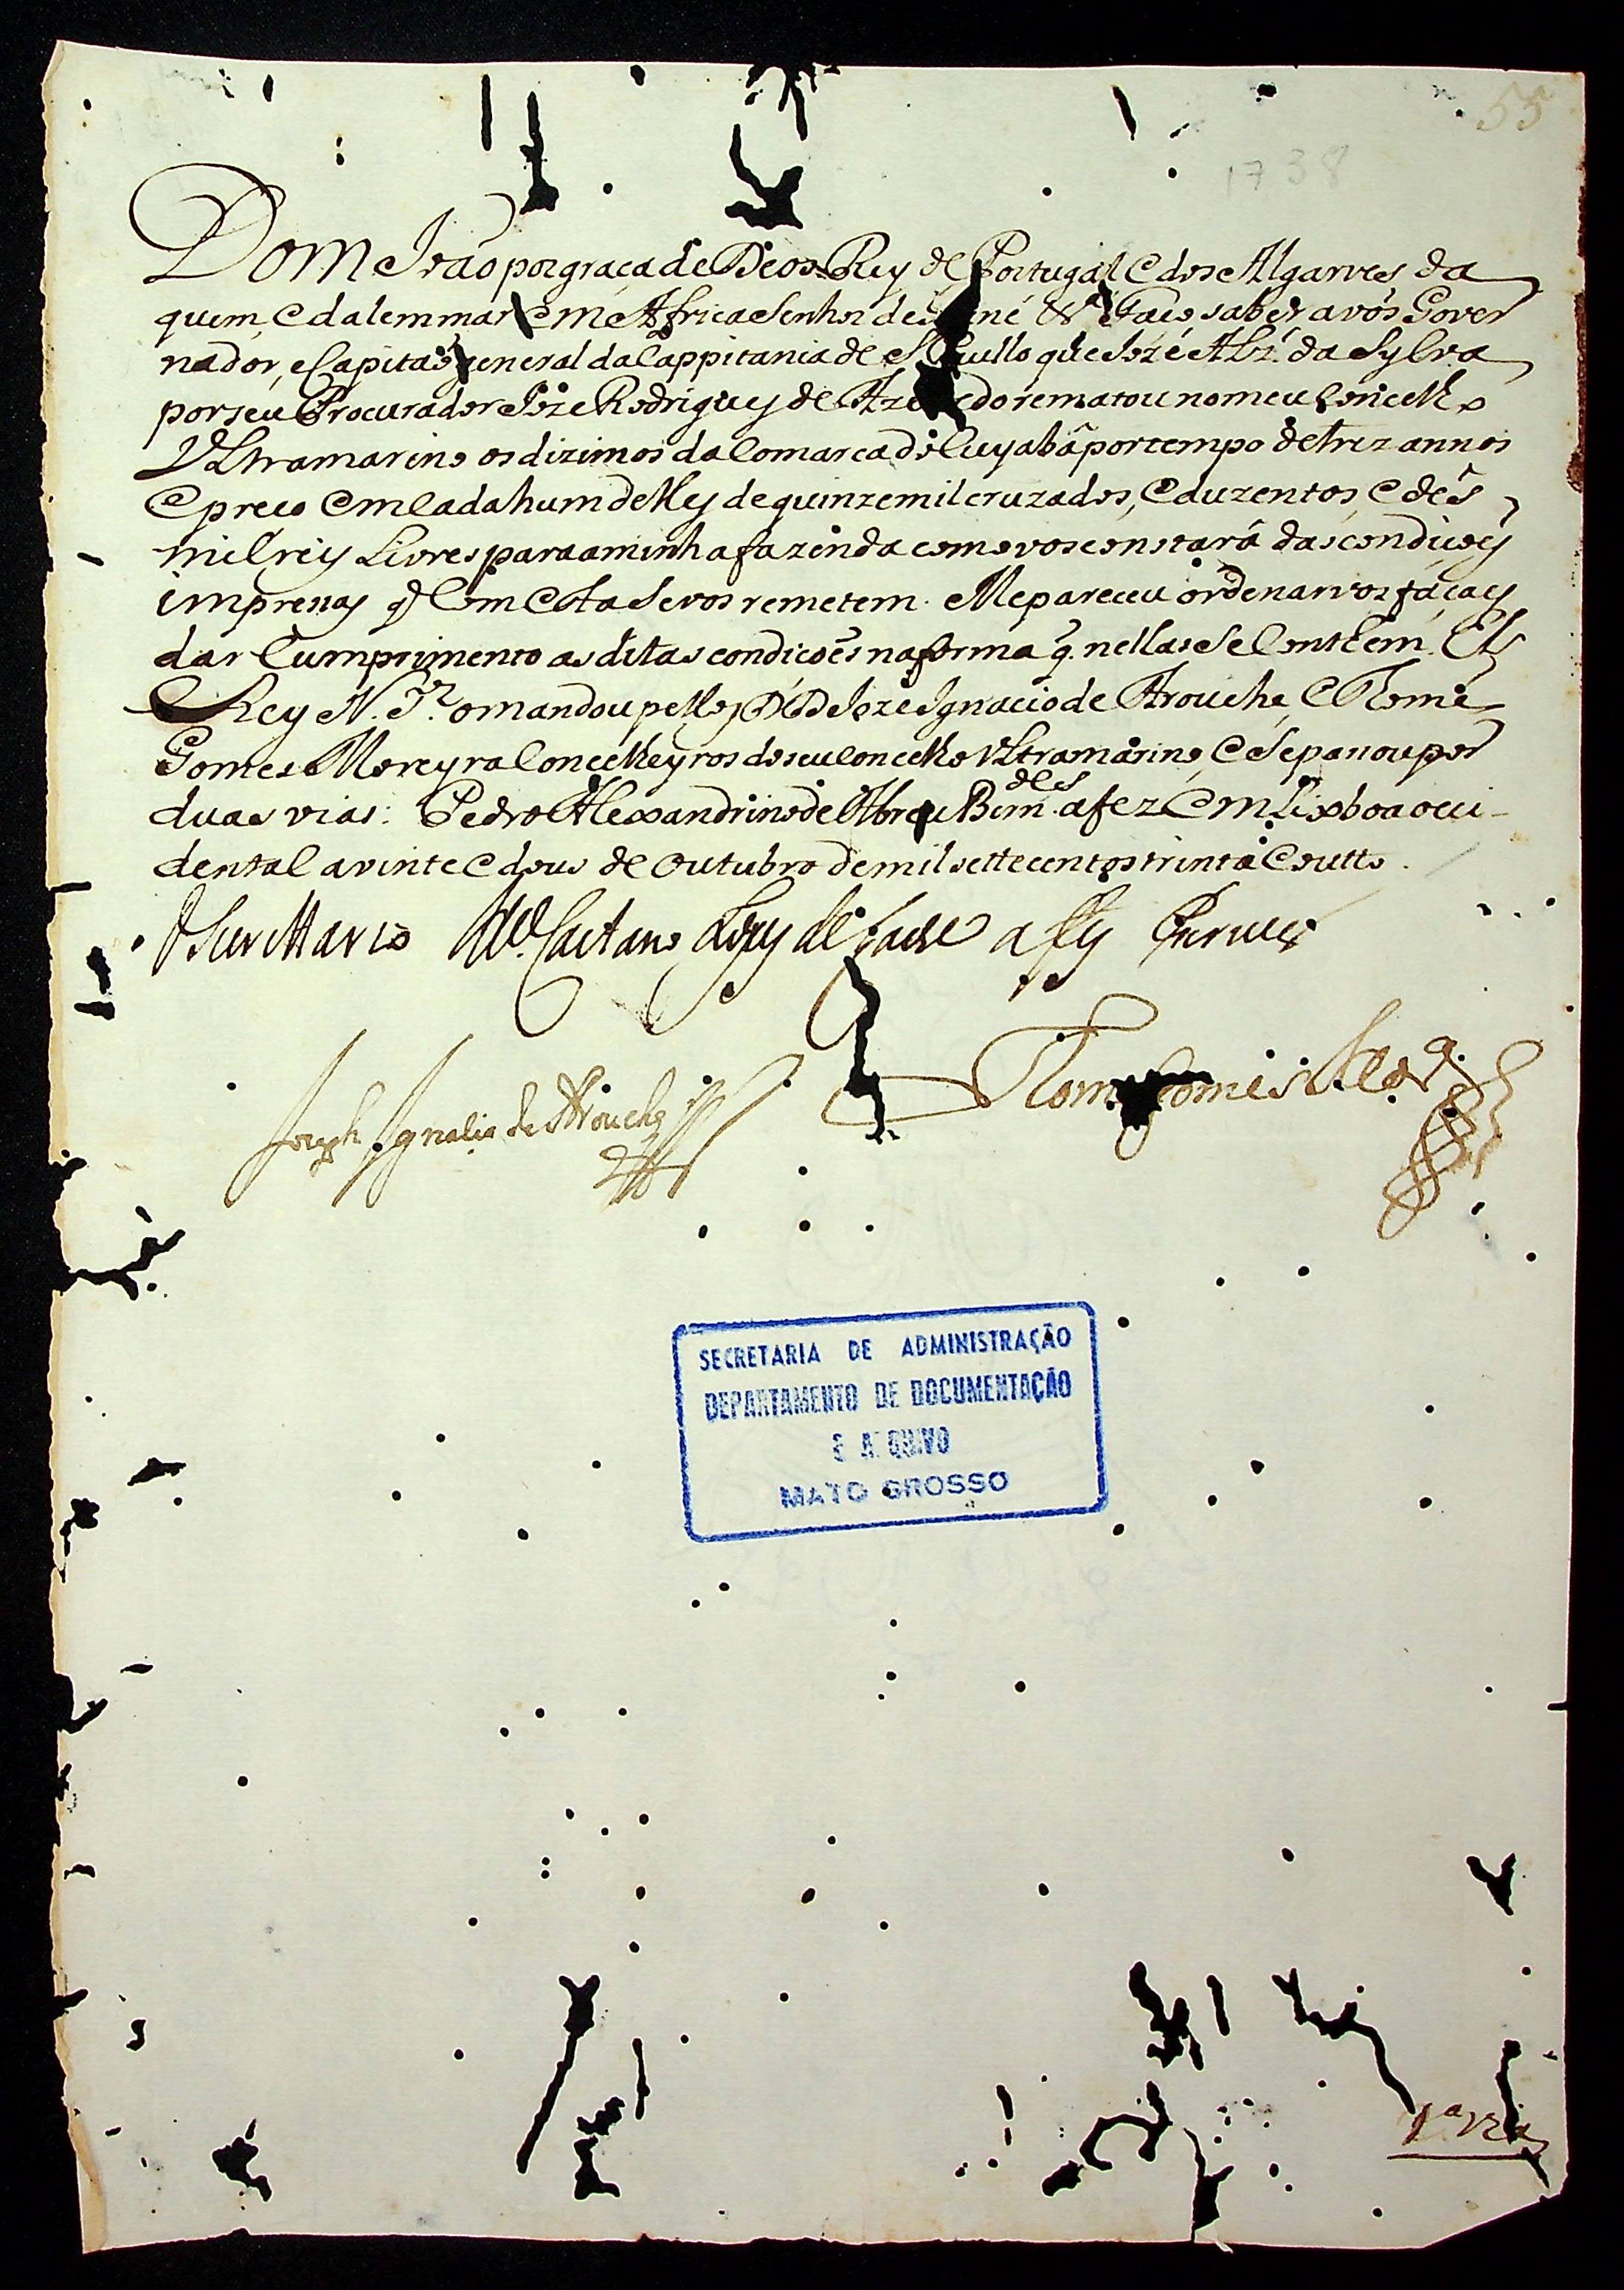 55
1738
Dom Joaõ por graça de Deos Rey de Portugal e dos Algarves da
quem, e dalem mar em Africa Senhor de Guiné &ª Faço saber a vós Gover
nador, e Capitaõ general da Cappitania de S. Paullo que Jozé Alz. da Sylva
por seu Procurador Joze Rodrigues de Azevedo rematou no meu Concelho
Ultramarino os dizimos da Comarca do Cuyabá por tempo de trez annos
e preço em Cada hum delles de quinze mil cruzados, e duzentos, e dés
mil reis Livres para a minha fazenda como vos constará das condiçoes
impressas q̃ Com esta Se vos remetem. Me pareceu ordenarvos façaes
dar Cumprimento as ditas condicoẽs na forma q̃. nellas Se Conthem. El
Rey N. Sr. o mandou pellos D.D. Joze Ignacio de Arouche, e Thome
Gomes Moreyra Concelheyros do seu Concelho Ultramarino, e Se passou por
duas vias. Pedro Alexandrino de Abreu Bern.des a fez em Lixboa occi-
dental a vinte e dous de Outubro de mil settecentos trinta e outto.
O Secretario M.el Caetano Lopes de Lavre a fes escrever
Joseph Ignacio de Arouche
Thome Gomes Mor.ª
SECRETARIA DE ADMINISTRAÇÃO
DEPARTAMENTO DE DOCUMENTAÇÃO
E ARQUIVO
MATO GROSSO
1ª via